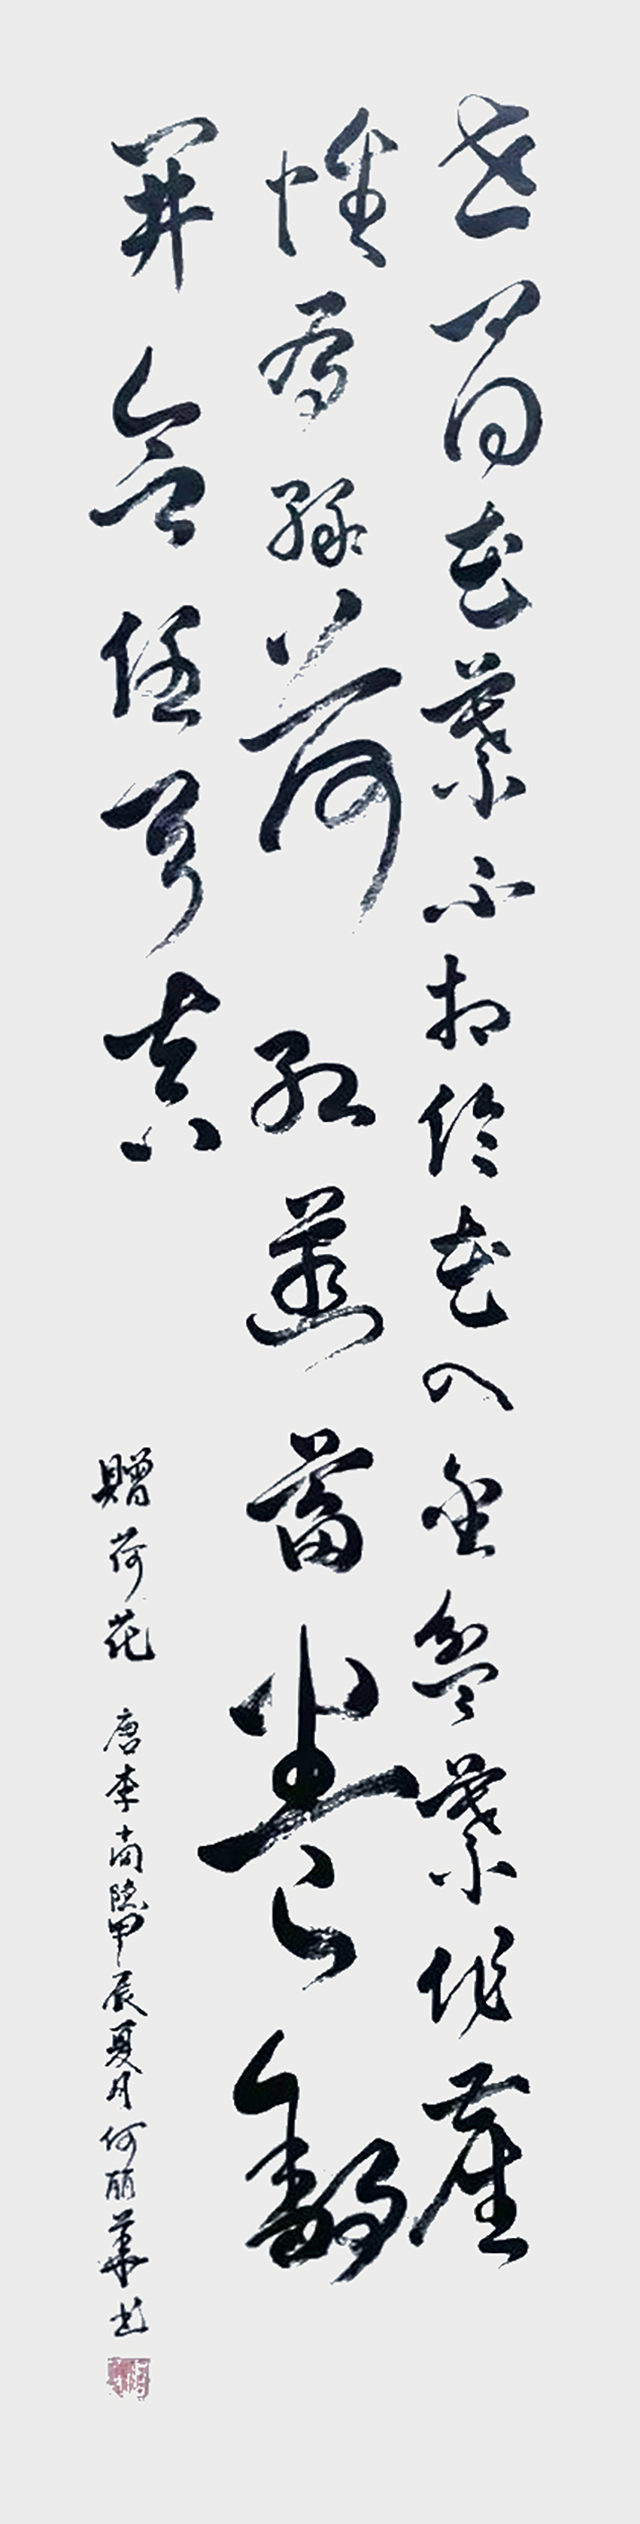 世间花叶不相伦花入金盆叶作尘
惟有绿荷红菡萏卷舒
开合任天真
赠荷花 唐李商隐甲辰夏月何丽华书